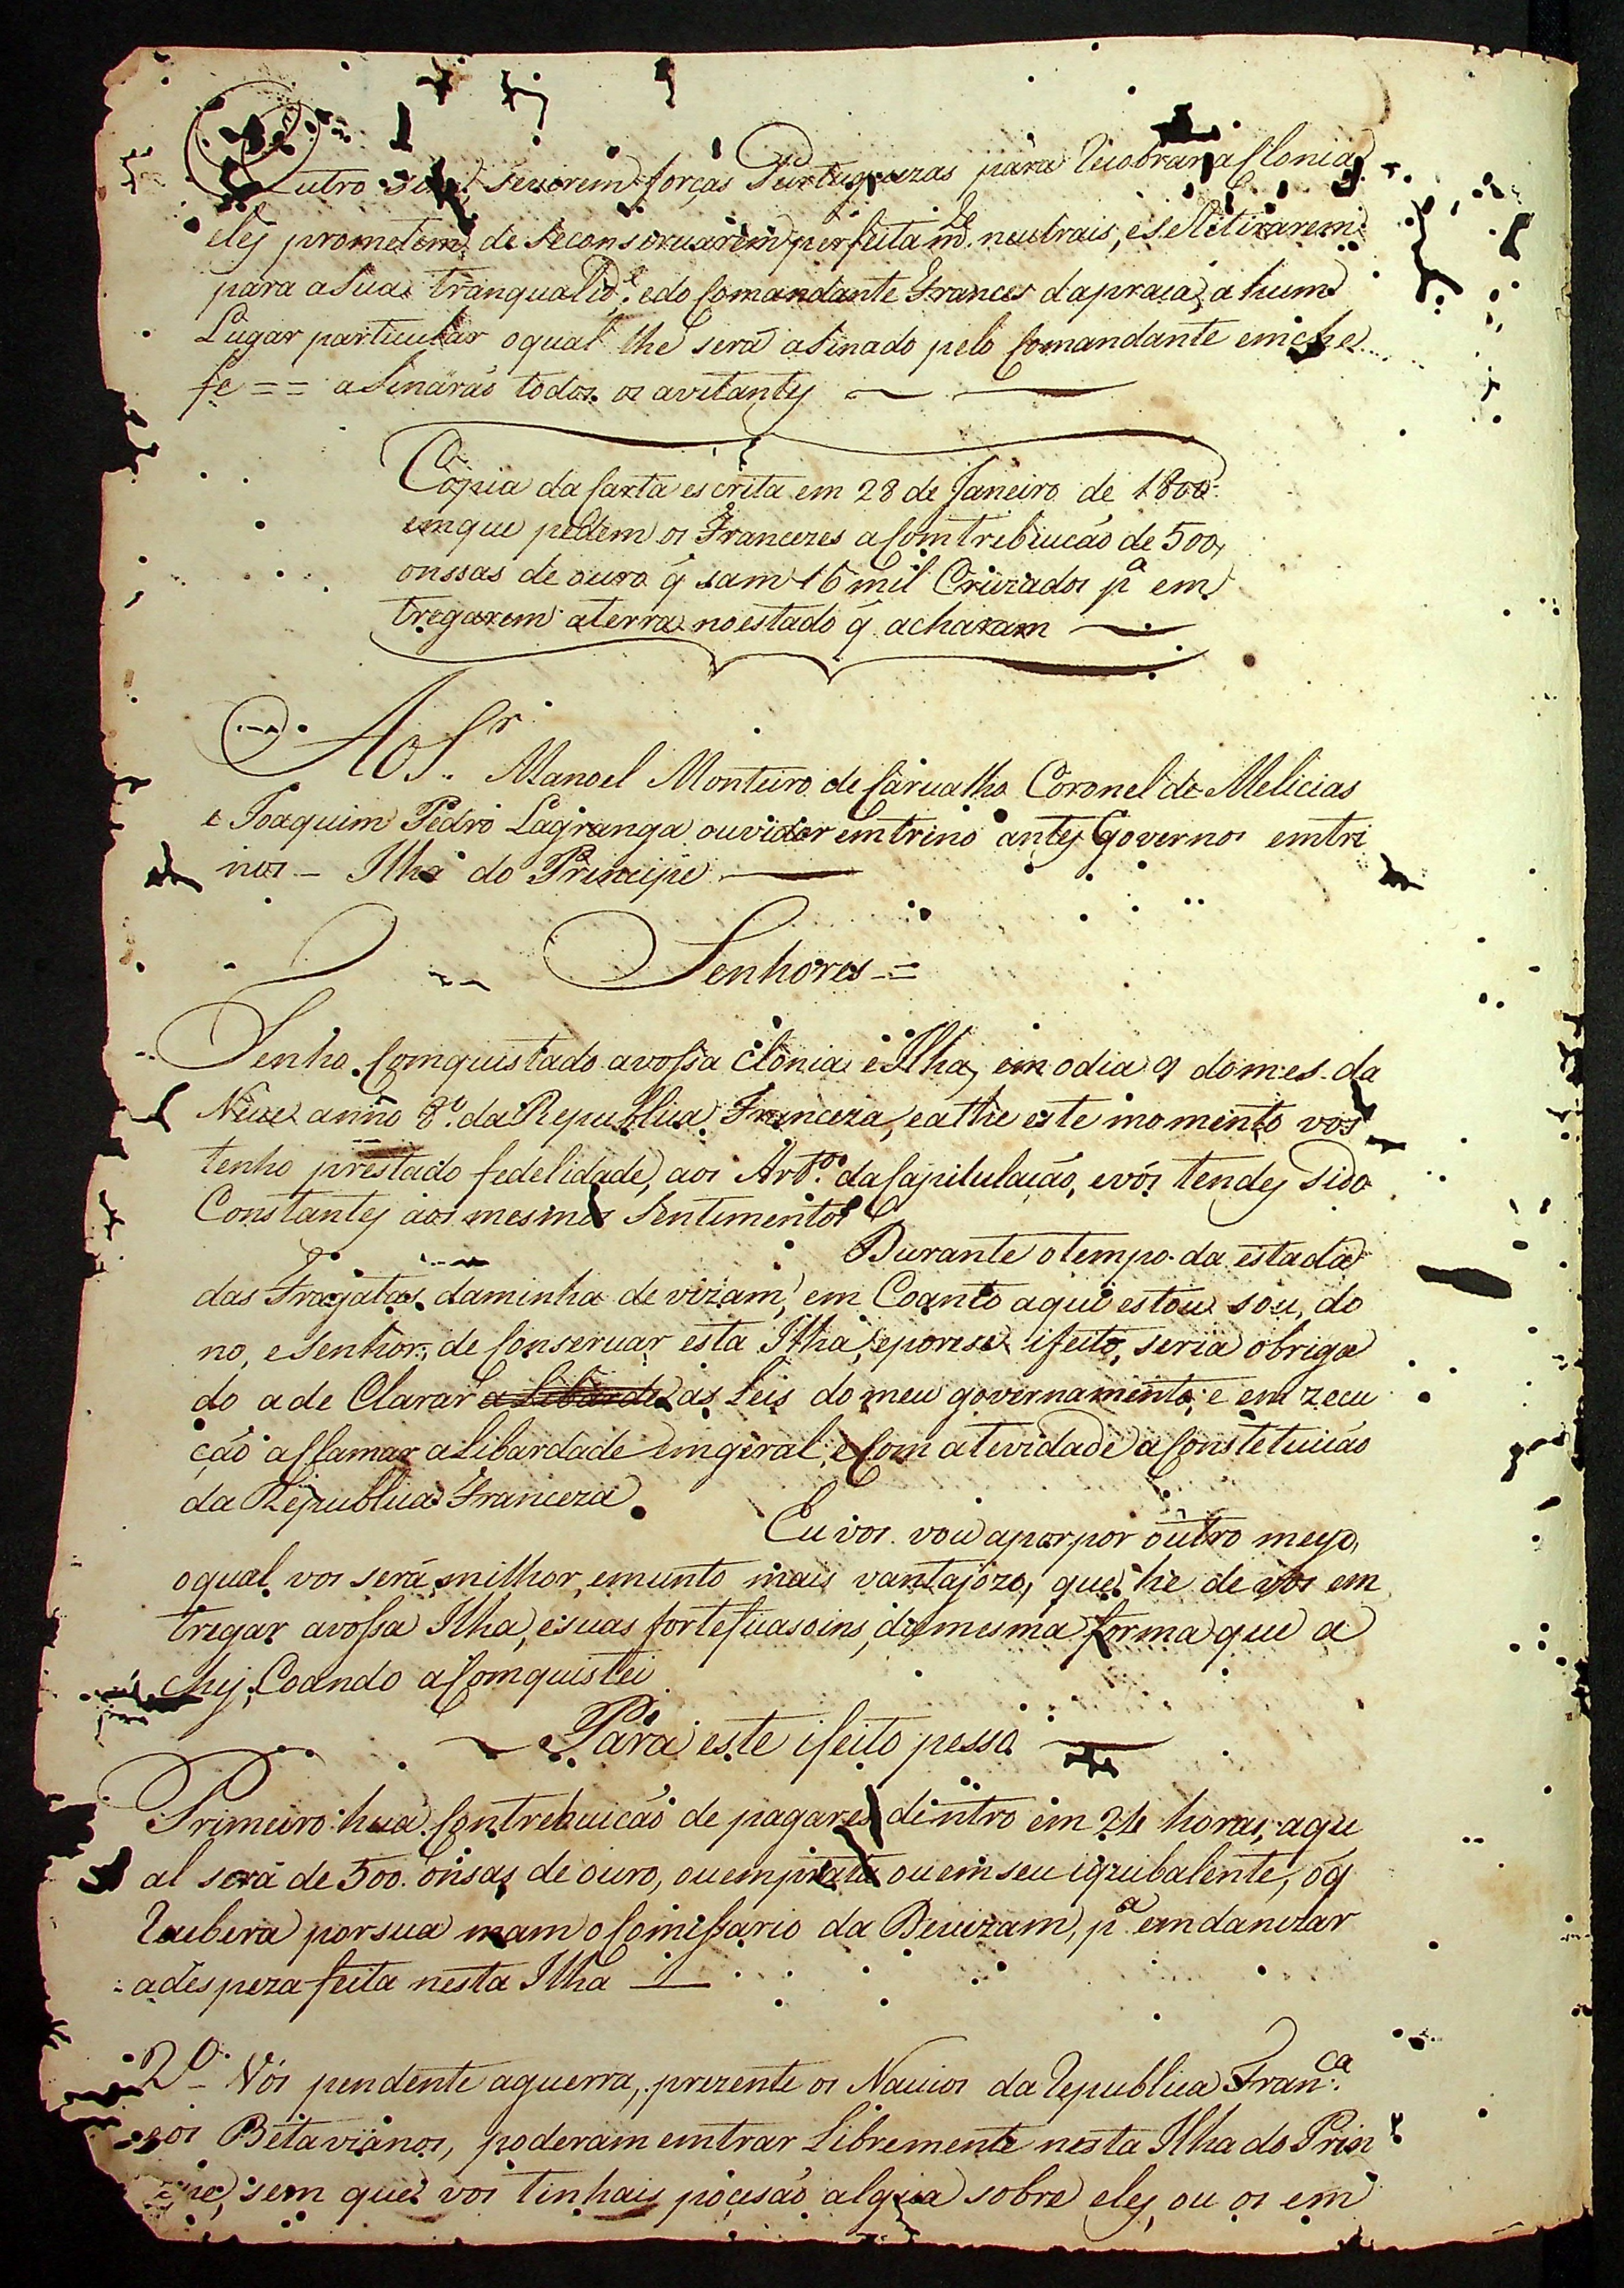 Outro sim, severem forças Purtuguezas para Recobrar a Clonia
eles prometem, de se consservarem perfeitam.te neutrais, e se Retirarem
para a sua tranqualid.e, e do Comandante Frances da praça, a hum
Lugar particular o qual lhe será asinado pelo Comandante em che
fe == asinarão todos os avitantes
Cópia da Carta escrita em 28 de Janeiro de 1800
em que pedem os Francezes a Comtribiucáo de 500,,
onssas de ouro q̃ sam 16 mil Cruzados p.a em
tregarem a terra no estado q̃ acharam
Ao S.r Manoel Monteiro de Carvalho Coronel de Melicias
e Joaquim Pedro Lagranga ouvidor emtrino antes Governos emtri
nos — Ilha do Principe
Senhores =
Tenho Comquistado a vossa Clonia e Ilha, em o dia 9 do mes da
Neve anno 8.o da Republica Franceza, e athe este momento vos
tenho prestado fedelidade, aos Art.os da Capitulaçáo, e vós tendes sido
Constantes aos mesmos Sentimentos
Durante o tempo da estada
das Fragatas da minha devizam, em Coanto aqui estou sou, do
no, e senhor, de Conservar esta Ilha, e por ese ifeito, seria obriga
do a de Clarar a Libarde as Leis do meu governamento, e em zecu
ção a Clamar a Libardade em geral, e Com atevidade a Constetuicáo
da Republica Franceza
Eu vos vou apor por outro meyo,
o qual vos será milhor, e munto mais vantajozo, que he de vos em
tregar a vossa Ilha, e suas forteficasoins, da mesma forma que a
chej, Coando a Comquistei
Para este ifeito pesso
Primeiro hua Contrebuicáo de pagares dentro em 24 horas, a qu
al será de 500 onsas de ouro, ou em prata ou em seu iqubalente, o q̃
Recbera por sua mam o Comissario da Devizam, p.a emdanizar
a despeza feita nesta Ilha
2.o Vós pendente a guerra, prezente os Navios da Republica Fran.ca
e os Betavianos, poderam emtrar Libremente nesta Ilha do Prin
cipe, sem que vos tinhais pocesáo algua sobre eles, ou os em